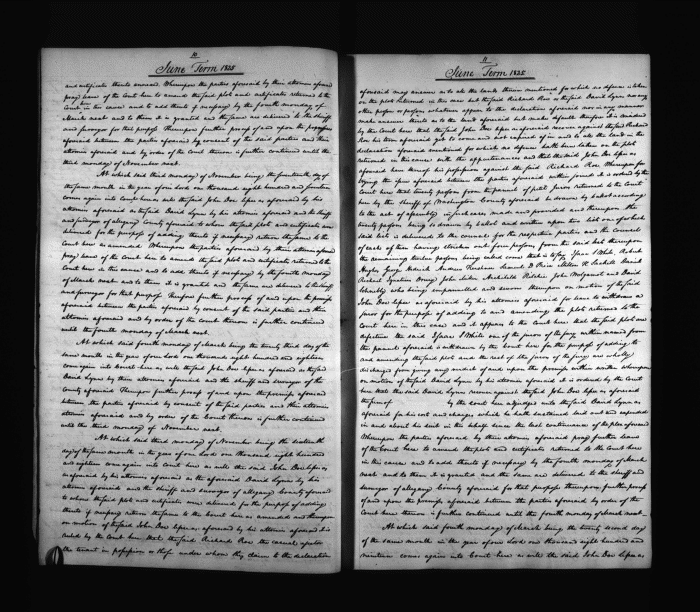 10
June Term 1825
and certificate thereto annexed. Whereupon the parties aforesaid by their attornies aforesaid
pray leave of the Court here to amend the plot and certificate returned to the
Court in this case and to add thereto if necessary by the fourth monday of
March next and to them it is granted and the same are delivered to the Sheriff
and surveyor for that purpose Thereupon further proceſs of and upon the premises
aforesaid between the parties aforesaid by consent of the said parties and their
attornies aforesaid and by order of the Court thereon is further continued until the
third monday of November next.
At which said third monday of November being the day of
the same month in the year of our Lord one thousand eight hundred and
come again into Court here as well the said John Doe leſsee as aforesaid by his
attorney aforesaid as the said David Lynn by his attorney aforesaid and the Sheriff
and surveyor of allegany County aforesaid to whom the said plot and certificate were
delivered for the purpose of adding thereto if necessary return the same to the
Court here as amended. Whereupon the parties aforesaid by their attornies aforesaid
pray leave of the Court here to amend the said plot and certificate returned to the
Court here in this cause and to add thereto if necessary by the fourth monday
of March next and to them it is granted and the same are delivered to the Sheriff
and surveyor for that purpose Therefore further proceſs of and upon the premises
aforesaid between the parties aforesaid by consent of the said parties and their
attornies aforesaid and by order of the Court thereon is further continued
until the fourth monday of March next.
At which said fourth monday of March being the twenty third day of the
same month in the year of our Lord one thousand eight hundred and eighteen
come again into Court here as well the said John Doe leſsee as aforesaid as the said
David Lynn by their attornies aforesaid and the Sheriff and surveyor of the
county aforesaid Thereupon further proceſs of and upon the premises aforesaid
between the parties aforesaid by consent of the said parties and their
attornies aforesaid and by order of the Court thereon is further continued
until the third monday of November next.
At which said third monday of November being the sixteenth
day of the same month in the year of our Lord one thousand eight hundred
and eighteen come again into Court here as well the said John Doe leſsee as
as aforesaid by his attorney aforesaid as the aforesaid David Lynn by his
attorney aforesaid and the sheriff and surveyor of allegany County aforesaid
to whom the said plot and certificate were delivered for the purpose of adding
thereto if necessary return the same to the Court here as amended and thereupon
on motion of the said John Doe leſsee as aforesaid by his attorney aforesaid it is
ruled by the Court here that the said Richard Roe the casual ejector
the tenant in poſseſsion or those under whom they claim to the declaration
11
June Term 1825
aforesaid may answer as to all the lands therein mentioned for which no defence is taken
on the plot returned in this case but the said Richard Roe or the said David Lynn or any
other person or persons whatever appear to the declaration aforesaid nor in any manner
make answer thereto as to the land aforesaid but make default therefore it is considered
by the Court here that the said John Doe leſsee as aforesaid recover against the said Richard
Roe his term aforesaid yet to come and not expired of in and to all the land in the
declaration aforesaid mentioned for which no defence hath been taken on the plot
returned in this cause with the appurtenances and that the said John Doe leſsee as
aforesaid have thereof his poſseſsion against the said Richard Roe Whereupon for
trying the iſsue aforesaid between the parties aforesaid within joined it is ordered by the
Court here that twenty persons from the pannel of petit Jurors returned to the Court
here by the Sheriff of Washington County aforesaid be drawn by ballot according
to the act of aſsembly in such cases made and provided and thereupon the
twenty persons being so drawn by ballot and written upon two lists one of which
said lists is delivered to the counsel for the respective parties and the Council
of each of them having stricken out four persons from the said list thereupon
the remaining twelve persons being called come that is to say Isaac S White, Robert
Hughes George Andrew Kershner Samuel D Price William
Ignatius Drury John Archibald Ritchie John Wolgamot and David
who being empannelled and sworn thereupon on motion of the said
John Doe leſsee as aforesaid by his attorney aforesaid for leave to withdraw a
juror for the purpose of adding to and amending the plots returned to the
Court here in this case and it appears to the Court here that the said plots are
defective the said Isaac S White one of the jurors of the jury within named from
the pannel aforesaid is withdrawn by the Court here for the purpose of adding to
and amending the said plots and the rest of the jurors of the jury are wholly
discharged from giving any verdict of and upon the premises within written Whereupon
on motion of the said David Lynn by his attorney aforesaid it is ordered by the Court
here that the said David Lynn recover against the said John Doe leſsee as aforesaid
the sum of by the Court here adjudged unto the said David Lynn as
aforesaid for his costs and charges which he hath sustained laid out and expended
in and about his suit in this behalf since the last continuance of the plea aforesaid
Whereupon the parties aforesaid by their attornies aforesaid pray further leave
of the Court here to amend the plots and certificates returned to the Court here
in this cause and to add thereto if necessary by the fourth monday of March
next and to them it is granted and the same are returned to the Sheriff and
surveyor of allegany County aforesaid for that purpose thereupon further proceſs
of and upon the premises aforesaid between the parties aforesaid by order of the
Court here thereon is further continued until the fourth monday of March next.
At which said fourth monday of March being the twenty second day
of the same month in the year of our Lord one thousand eight hundred and
nineteen come again into Court here as well the said John Doe leſsee as